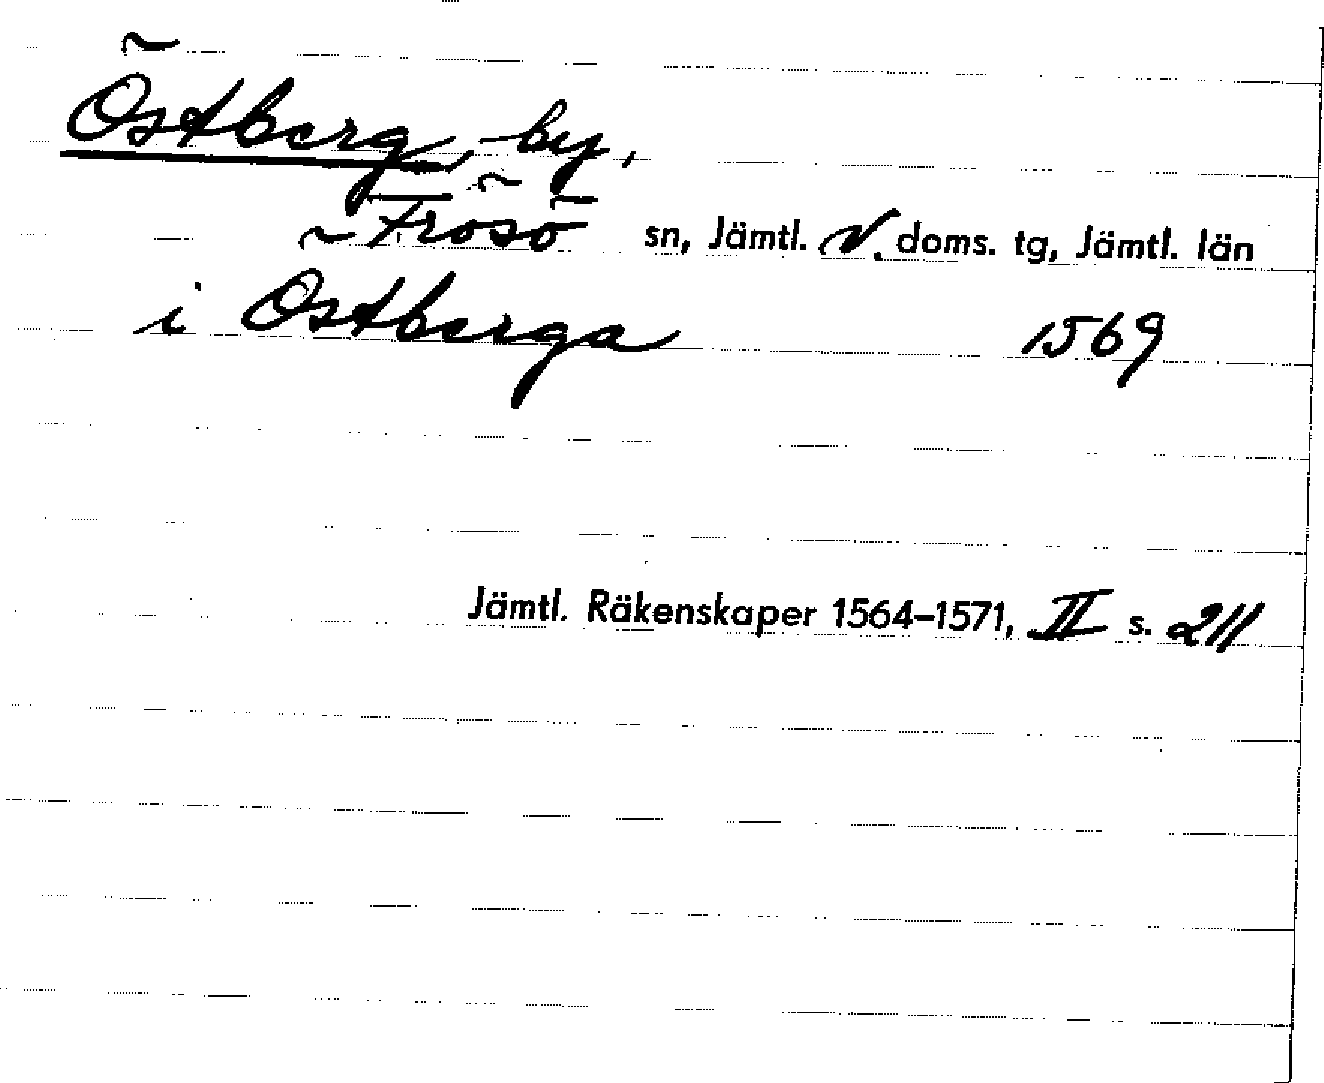 Östberg, by,
Frösö sn, Jämtl. V. doms. tg, Jämtl. län
i Östberga 1569
Jämtl. Räkenskaper 1564–1571, II s. 211